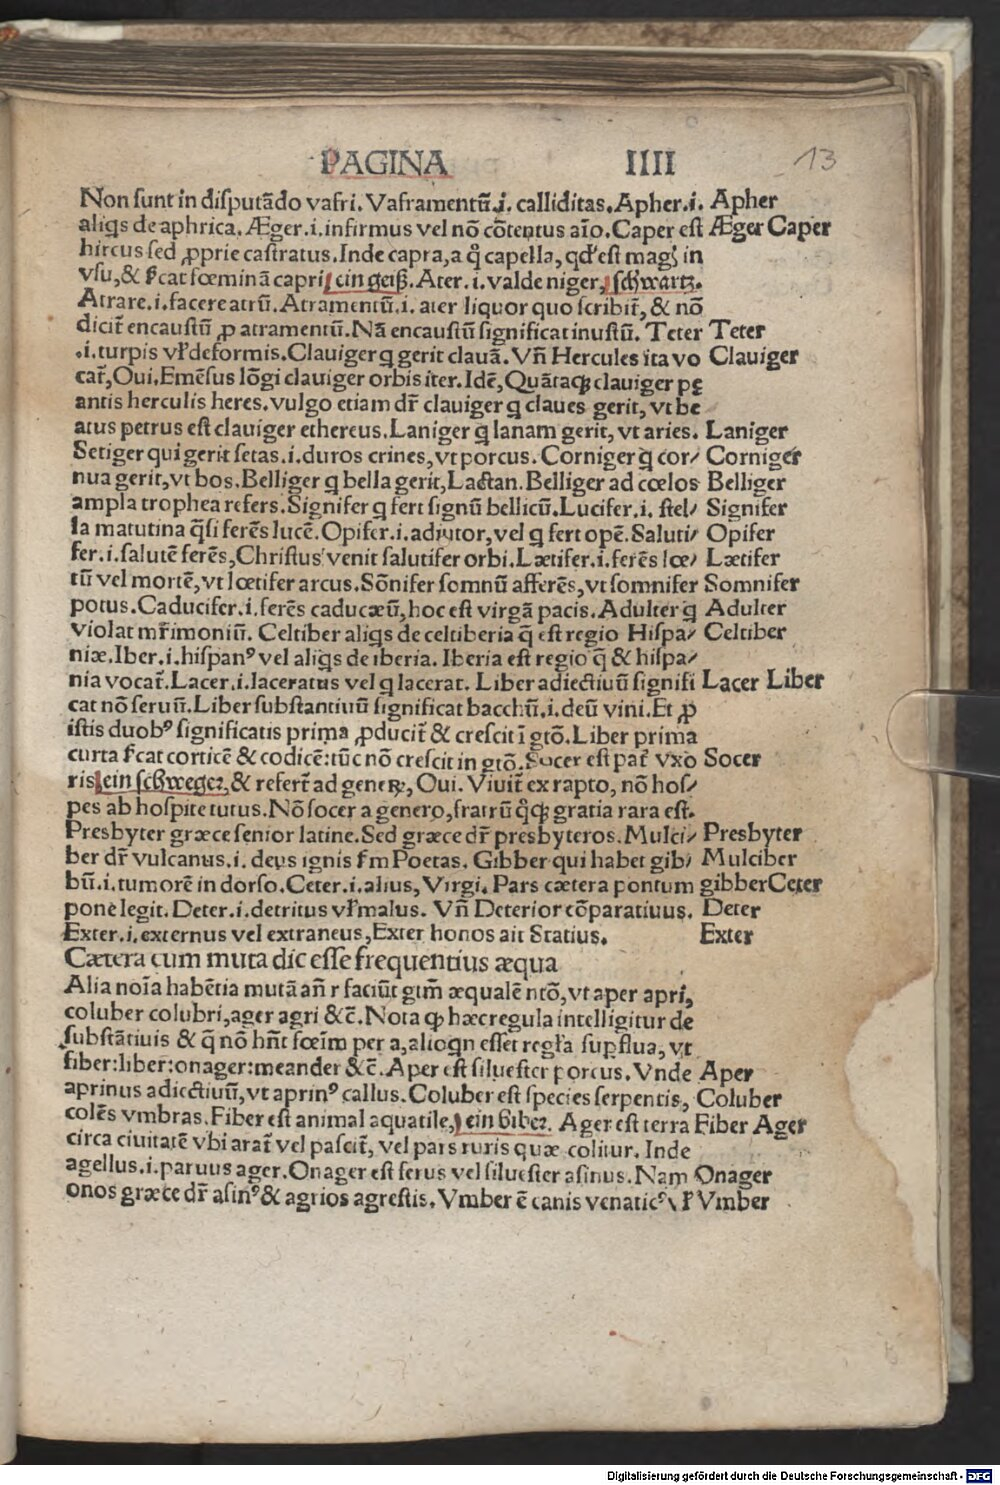 PAGINA IIII 13
Non sunt in disputãdo vafri. Vaframentũ.i. calliditas. Apher.i. Apher
aliqs de aphrica. Æger.i.infirmus vel nõ cõtentus aĩo. Caper est Æger Caper
hircus sed ꝓprie castratus. Inde capra, a q̃ capella, qđ est magꝭ in
vsu, & sͬcat fœminã capri, ein geiß. Ater.i. valde niger, schwartz.
Atrare.i.facere atrũ. Atramentũ.i. ater liquor quo scribit̃, & nõ
dicit̃ encaustũ ꝓ atramentũ. Nã encaustũ significat inustũ. Teter Teter
.i.turpis vl̃ deformis. Clauiger ꝗ gerit clauã. Vñ Hercules ita vo Clauiger
cat̃, Oui. Emẽsus lõgi clauiger orbis iter. Idẽ, Quãtaꝙ clauiger pę
antis herculis heres. vulgo etiam dr̃ clauiger ꝗ claues gerit, vt be
atus petrus est clauiger ethereus. Laniger ꝗ lanam gerit, vt aries. Laniger
Setiger qui gerit setas.i.duros crines, vt porcus. Corniger ꝗ cor⸗ Corniger
nua gerit, vt bos. Belliger ꝗ bella gerit, Lactan. Belliger ad cœlos Belliger
ampla trophea refers. Signifer ꝗ fert signũ bellicũ. Lucifer.i. stel⸗ Signifer
la matutina q̃si ferẽs lucẽ. Opifer.i.adiutor, vel ꝗ fert opẽ. Saluti⸗ Opifer
fer.i.salutẽ ferẽs, Christus venit salutifer orbi. Lætifer.i.ferẽs lœ⸗ Lætifer
tũ vel mortẽ, vt lœtifer arcus. Sõnifer somnũ afferẽs, vt somnifer Somnifer
potus. Caducifer.i.ferẽs caducæũ, hoc est virgã pacis. Adulter ꝗ Adulter
violat mr̃imoniũ. Celtiber aliqs de celtiberia q̃ est regio Hispa⸗ Celtiber
niæ. Iber.i.hispanꝰ vel aliqs de iberia. Iberia est regio q̃ & hispa⸗
nia vocat̃. Lacer.i.laceratus vel ꝗ lacerat. Liber adiectiuũ signifi Lacer Liber
cat nõ seruũ. Liber substantiuũ significat bacchũ.i.deũ vini. Et ꝓ
istis duobꝰ significatis prima ꝓducit̃ & crescit ĩ gtõ. Liber prima
curta sͬcat corticẽ & codicẽ: tũc nõ crescit in gtõ. Socer est pat̃ vxo Socer
ris, ein schweger, & refert̃ ad generꝝ, Oui. Viuit̃ ex rapto, nõ hos⸗
pes ab hospite tutus. Nõ socer a genero, fratrũ q̊ꝙ gratia rara est.
Presbyter græce senior latine. Sed græce dr̃ presbyteros. Mulci⸗ Presbyter
ber dr̃ vulcanus.i. deus ignis sͬm Poetas. Gibber qui habet gib⸗ Mulciber
bũ.i.tumorẽ in dorso. Ceter.i.alius, Virgi. Pars cætera pontum gibber Ceter
pone legit. Deter.i.detritus vl̃ malus. Vñ Deterior cõparatiuus. Deter
Exter.i.externus vel extraneus, Exter honos ait Statius. Exter
Cætera cum muta dic esse frequentius æqua
Alia noĩa habẽtia mutã añ r faciũt gtm̃ æqualẽ ntõ, vt aper apri,
coluber colubri, ager agri &c̃. Nota ꝙ hæc regula intelligitur de
substãtiuis & q̃ nõ hñt fœĩm per a, alioqn esset regl̃a supflua, vt
fiber: liber: onager: meander &c̃. Aper est siluester porcus. Vnde Aper
aprinus adiectiuũ, vt aprinꝰ callus. Coluber est species serpentis, Coluber
colẽs vmbras. Fiber est animal aquatile, ein biber. Ager est terra Fiber Ager
circa ciuitatẽ vbi arat̃ vel pascit̃, vel pars ruris quæ colitur. Inde
agellus.i.paruus ager. Onager est ferus vel siluester asinus. Nam Onager
onos græce dr̃ asinꝰ & agrios agrestis. Vmber ẽ canis venaticꝰ, sͬ Vmber
Digitalisierung gefördert durch die Deutsche Forschungsgemeinschaft - DFG